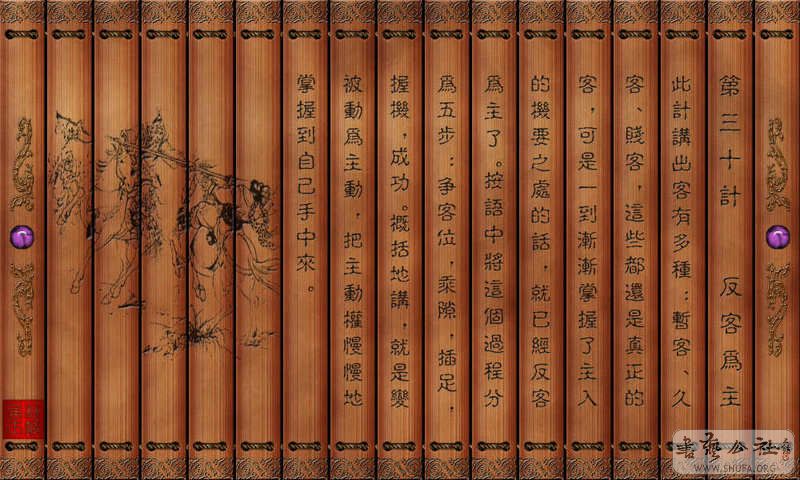 第三十計　反客爲主
此計講出客有多種：暫客、久
客、賤客，這些都還是真正的
客，可是一到漸漸掌握了主人
的機要之處的話，就已經反客
爲主了。按語中將這個過程分
爲五步：爭客位，乘隙，插足，
握機，成功。概括地講，就是變
被動爲主動，把主動權慢慢地
掌握到自己手中來。
書藝公社
WWW.SHUFA.ORG